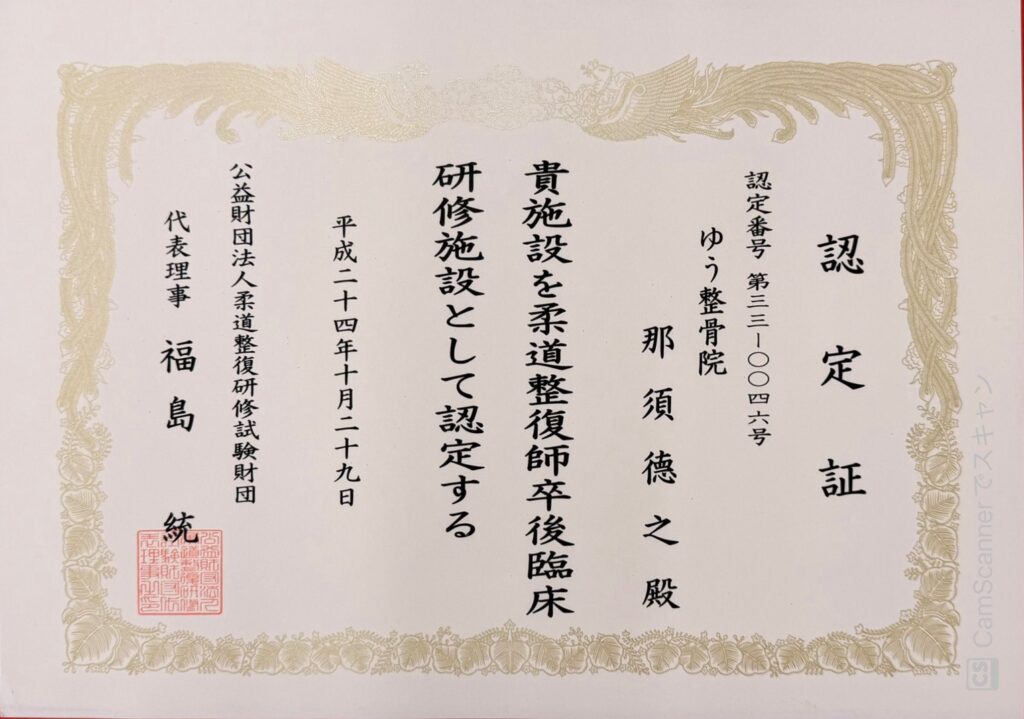 認定証
認定番号 第三三-〇〇四六号
ゆう整骨院
那須徳之殿
貴施設を柔道整復師卒後臨床
研修施設として認定する
平成二十四年十月二十九日
公益財団法人柔道整復研修試験財団
代表理事 福島 統
CS CamScannerでスキャン